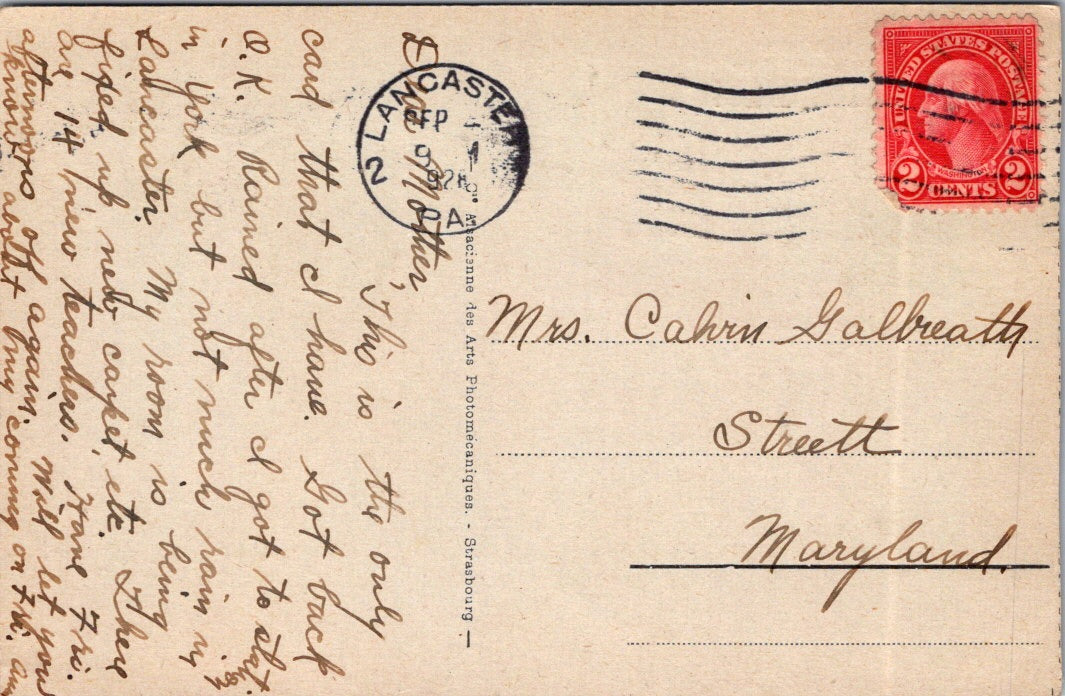 Dear Mother,
This is the only
card that I have. Got back
O.K. Rained after I got to
in York but not much rain in
Lancaster. My room is being
fixed up new carpet, etc. There
are 14 new teachers. Have Fri.
afternoons off again. Will let you
know about my coming on Fri.
LANCASTER
SEP
1928
2
PA.
Alsacienne des Arts Photomécaniques. - Strasbourg —
UNITED STATES POSTAGE
WASHINGTON
2 CENTS 2
Mrs. Calvin Galbreath
Streett
Maryland.